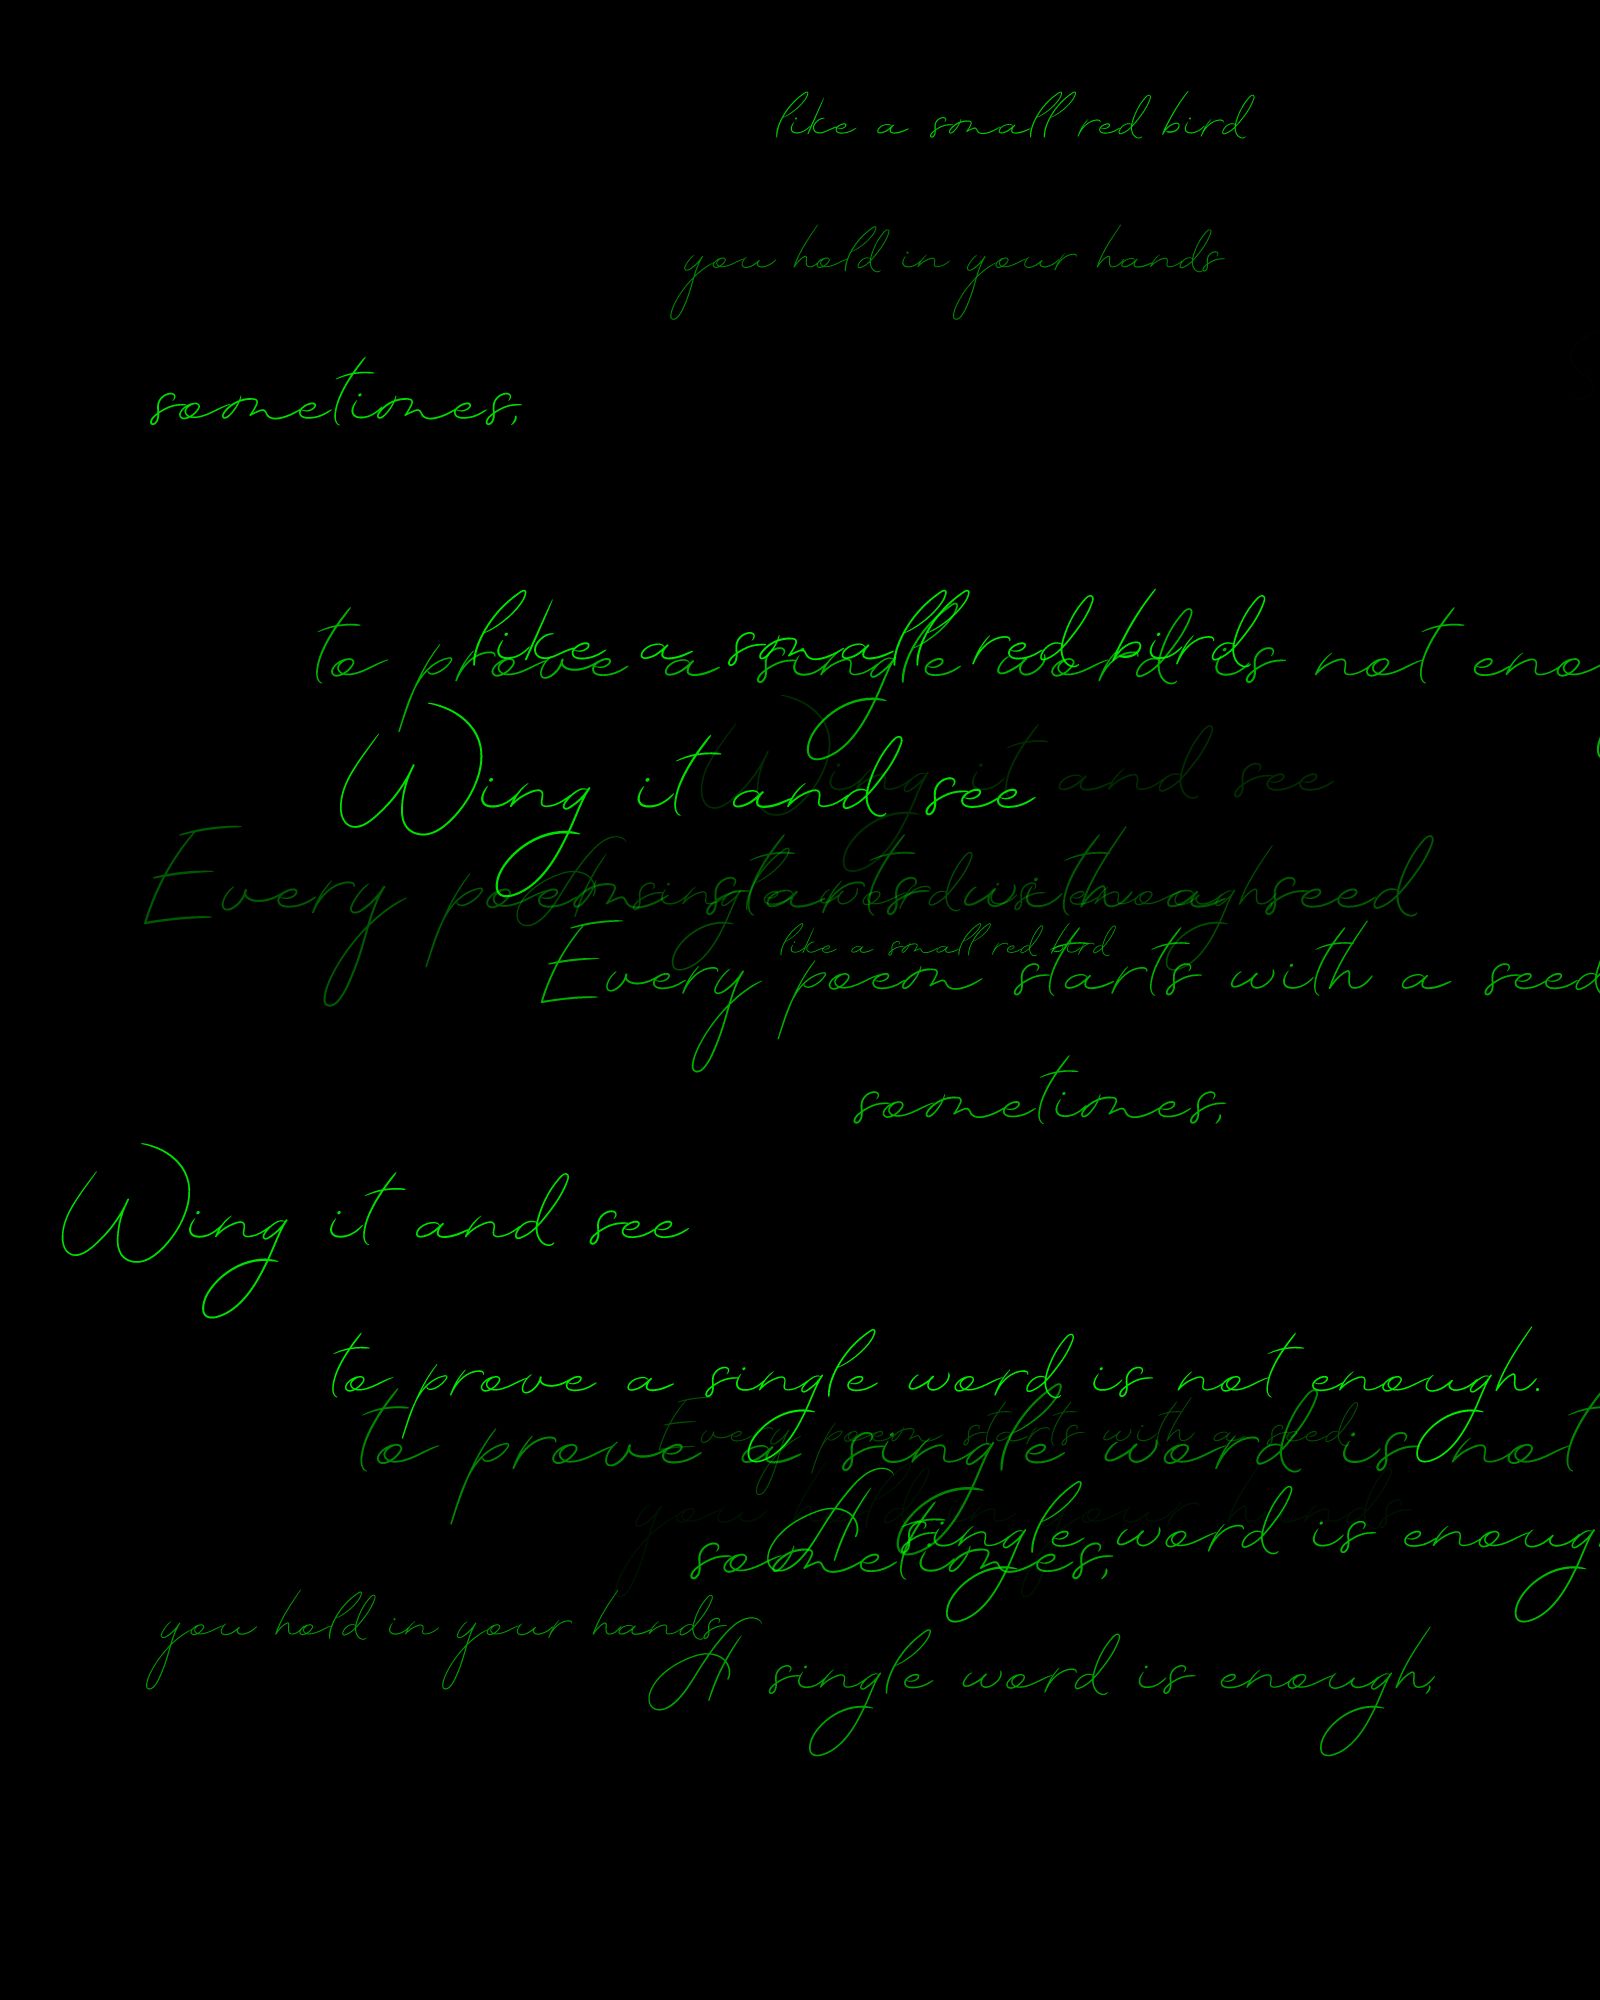 like a small red bird
you hold in your hands
sometimes,
like a small red bird
to prove a single word is not eno
Wing it and see
Wing it and see
Every poem starts with a seed
A single word is enough
like a small red bird
Every poem starts with a seed
sometimes,
Wing it and see
to prove a single word is not enough.
Every poem starts with a seed
to prove a single word is not
you hold in your hands
A single word is enoug
sometimes,
you hold in your hands
A single word is enough,